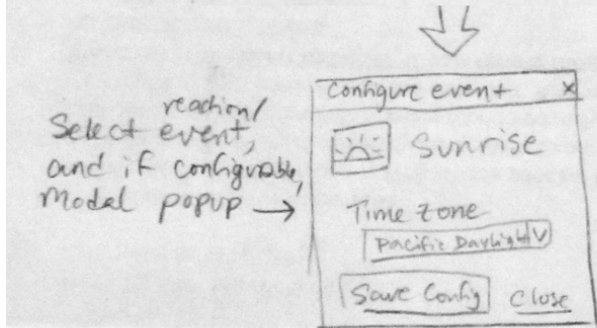 Select reaction/event,
and if configurable,
Modal popup →
Configure event X
Sunrise
Time Zone
Pacific Daylight V
Save Config Close